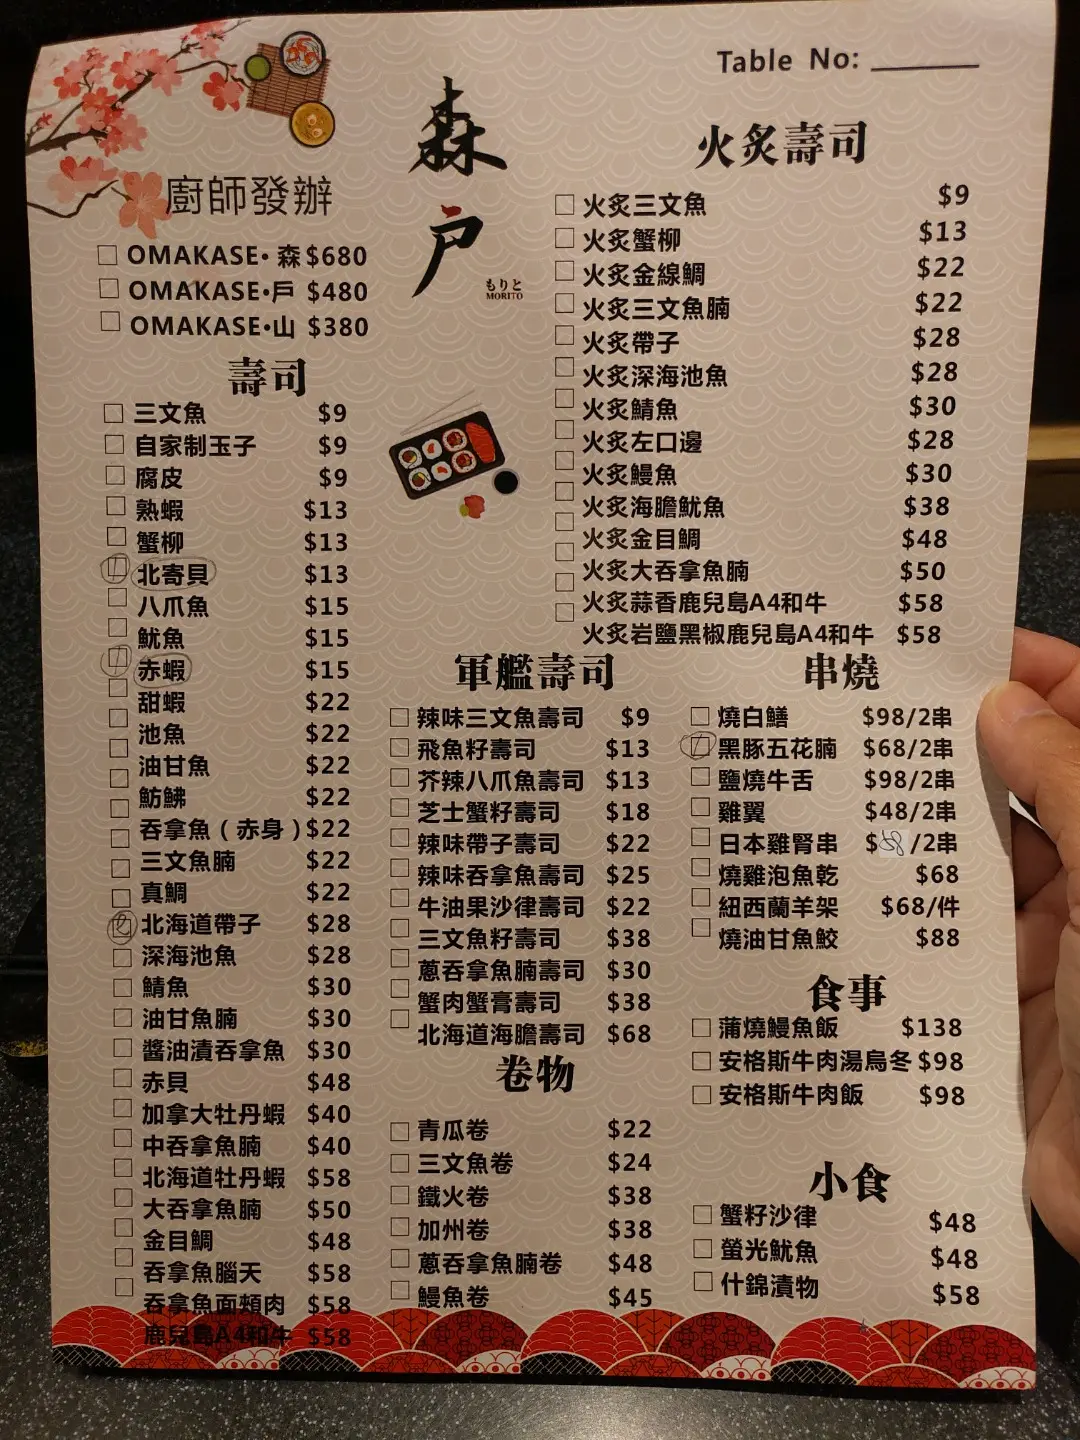 Table No:
森
戶
もりと
MORITO
廚師發辦
OMAKASE·森 $680
OMAKASE·戶 $480
OMAKASE·山 $380
壽司
三文魚 $9
自家制玉子 $9
腐皮 $9
熟蝦 $13
蟹柳 $13
北寄貝 $13
八爪魚 $15
魷魚 $15
赤蝦 $15
甜蝦 $22
池魚 $22
油甘魚 $22
魴鮄 $22
吞拿魚（赤身）$22
三文魚腩 $22
真鯛 $22
北海道帶子 $28
深海池魚 $28
鯖魚 $30
油甘魚腩 $30
醬油漬吞拿魚 $30
赤貝 $48
加拿大牡丹蝦 $40
中吞拿魚腩 $40
北海道牡丹蝦 $58
大吞拿魚腩 $50
金目鯛 $48
吞拿魚腦天 $58
吞拿魚面頰肉 $58
鹿兒島A4和牛 $58
火炙壽司
火炙三文魚 $9
火炙蟹柳 $13
火炙金線鯛 $22
火炙三文魚腩 $22
火炙帶子 $28
火炙深海池魚 $28
火炙鯖魚 $30
火炙左口邊 $28
火炙鰻魚 $30
火炙海膽魷魚 $38
火炙金目鯛 $48
火炙大吞拿魚腩 $50
火炙蒜香鹿兒島A4和牛 $58
火炙岩鹽黑椒鹿兒島A4和牛 $58
軍艦壽司
辣味三文魚壽司 $9
飛魚籽壽司 $13
芥辣八爪魚壽司 $13
芝士蟹籽壽司 $18
辣味帶子壽司 $22
辣味吞拿魚壽司 $25
牛油果沙律壽司 $22
三文魚籽壽司 $38
蔥吞拿魚腩壽司 $30
蟹肉蟹膏壽司 $38
北海道海膽壽司 $68
卷物
青瓜卷 $22
三文魚卷 $24
鐵火卷 $38
加州卷 $38
蔥吞拿魚腩卷 $48
鰻魚卷 $45
串燒
燒白鱔 $98/2串
黑豚五花腩 $68/2串
鹽燒牛舌 $98/2串
雞翼 $48/2串
日本雞腎串 $58/2串
燒雞泡魚乾 $68
紐西蘭羊架 $68/件
燒油甘魚鮫 $88
食事
蒲燒鰻魚飯 $138
安格斯牛肉湯烏冬 $98
安格斯牛肉飯 $98
小食
蟹籽沙律 $48
螢光魷魚 $48
什錦漬物 $58